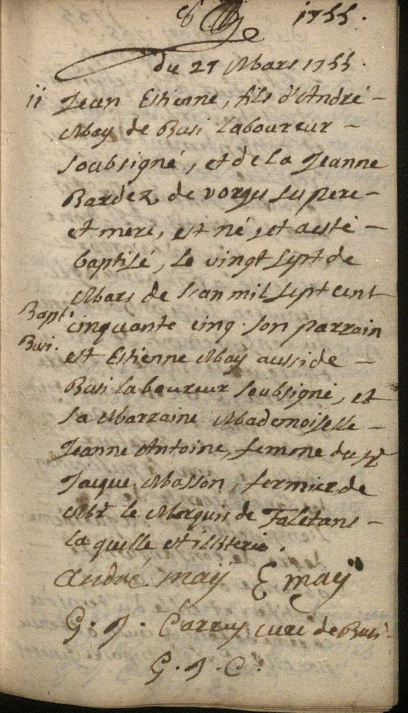 1755.
du 27 Mars 1755.
ii Jean Estienne, fils d'André
May de Busi Laboureur
soubsigné, et de la Jeanne
Bardez, de vorges ses pere
et mere, est né, et a esté
baptisé, Le vingt sept de
Mars de l'an mil sept cent
Bapt. cinquante cinq. son parrain
Busi. est Estienne May aussi de
Busi laboureur soubsigné, et
sa Marraine Mademoiselle
Jeanne Antoine, femme du Sr
Jacque Masson, fermier de
Mr le Marquis de Faletans
la quelle est illiteré.
andré may E may
G. J. curé de Busi
G. J. C.